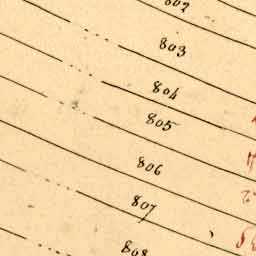 802
803
804
805
806
807
808